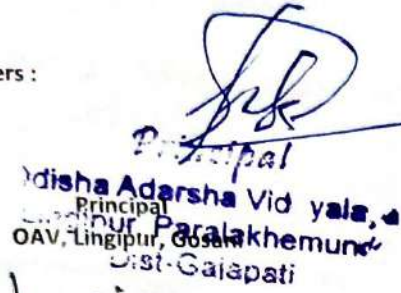 ers :
Principal
Odisha Adarsha Vid yala,
Principal
Paralakhemun
OAV, Lingipur, Gosani
Dist-Gajapati